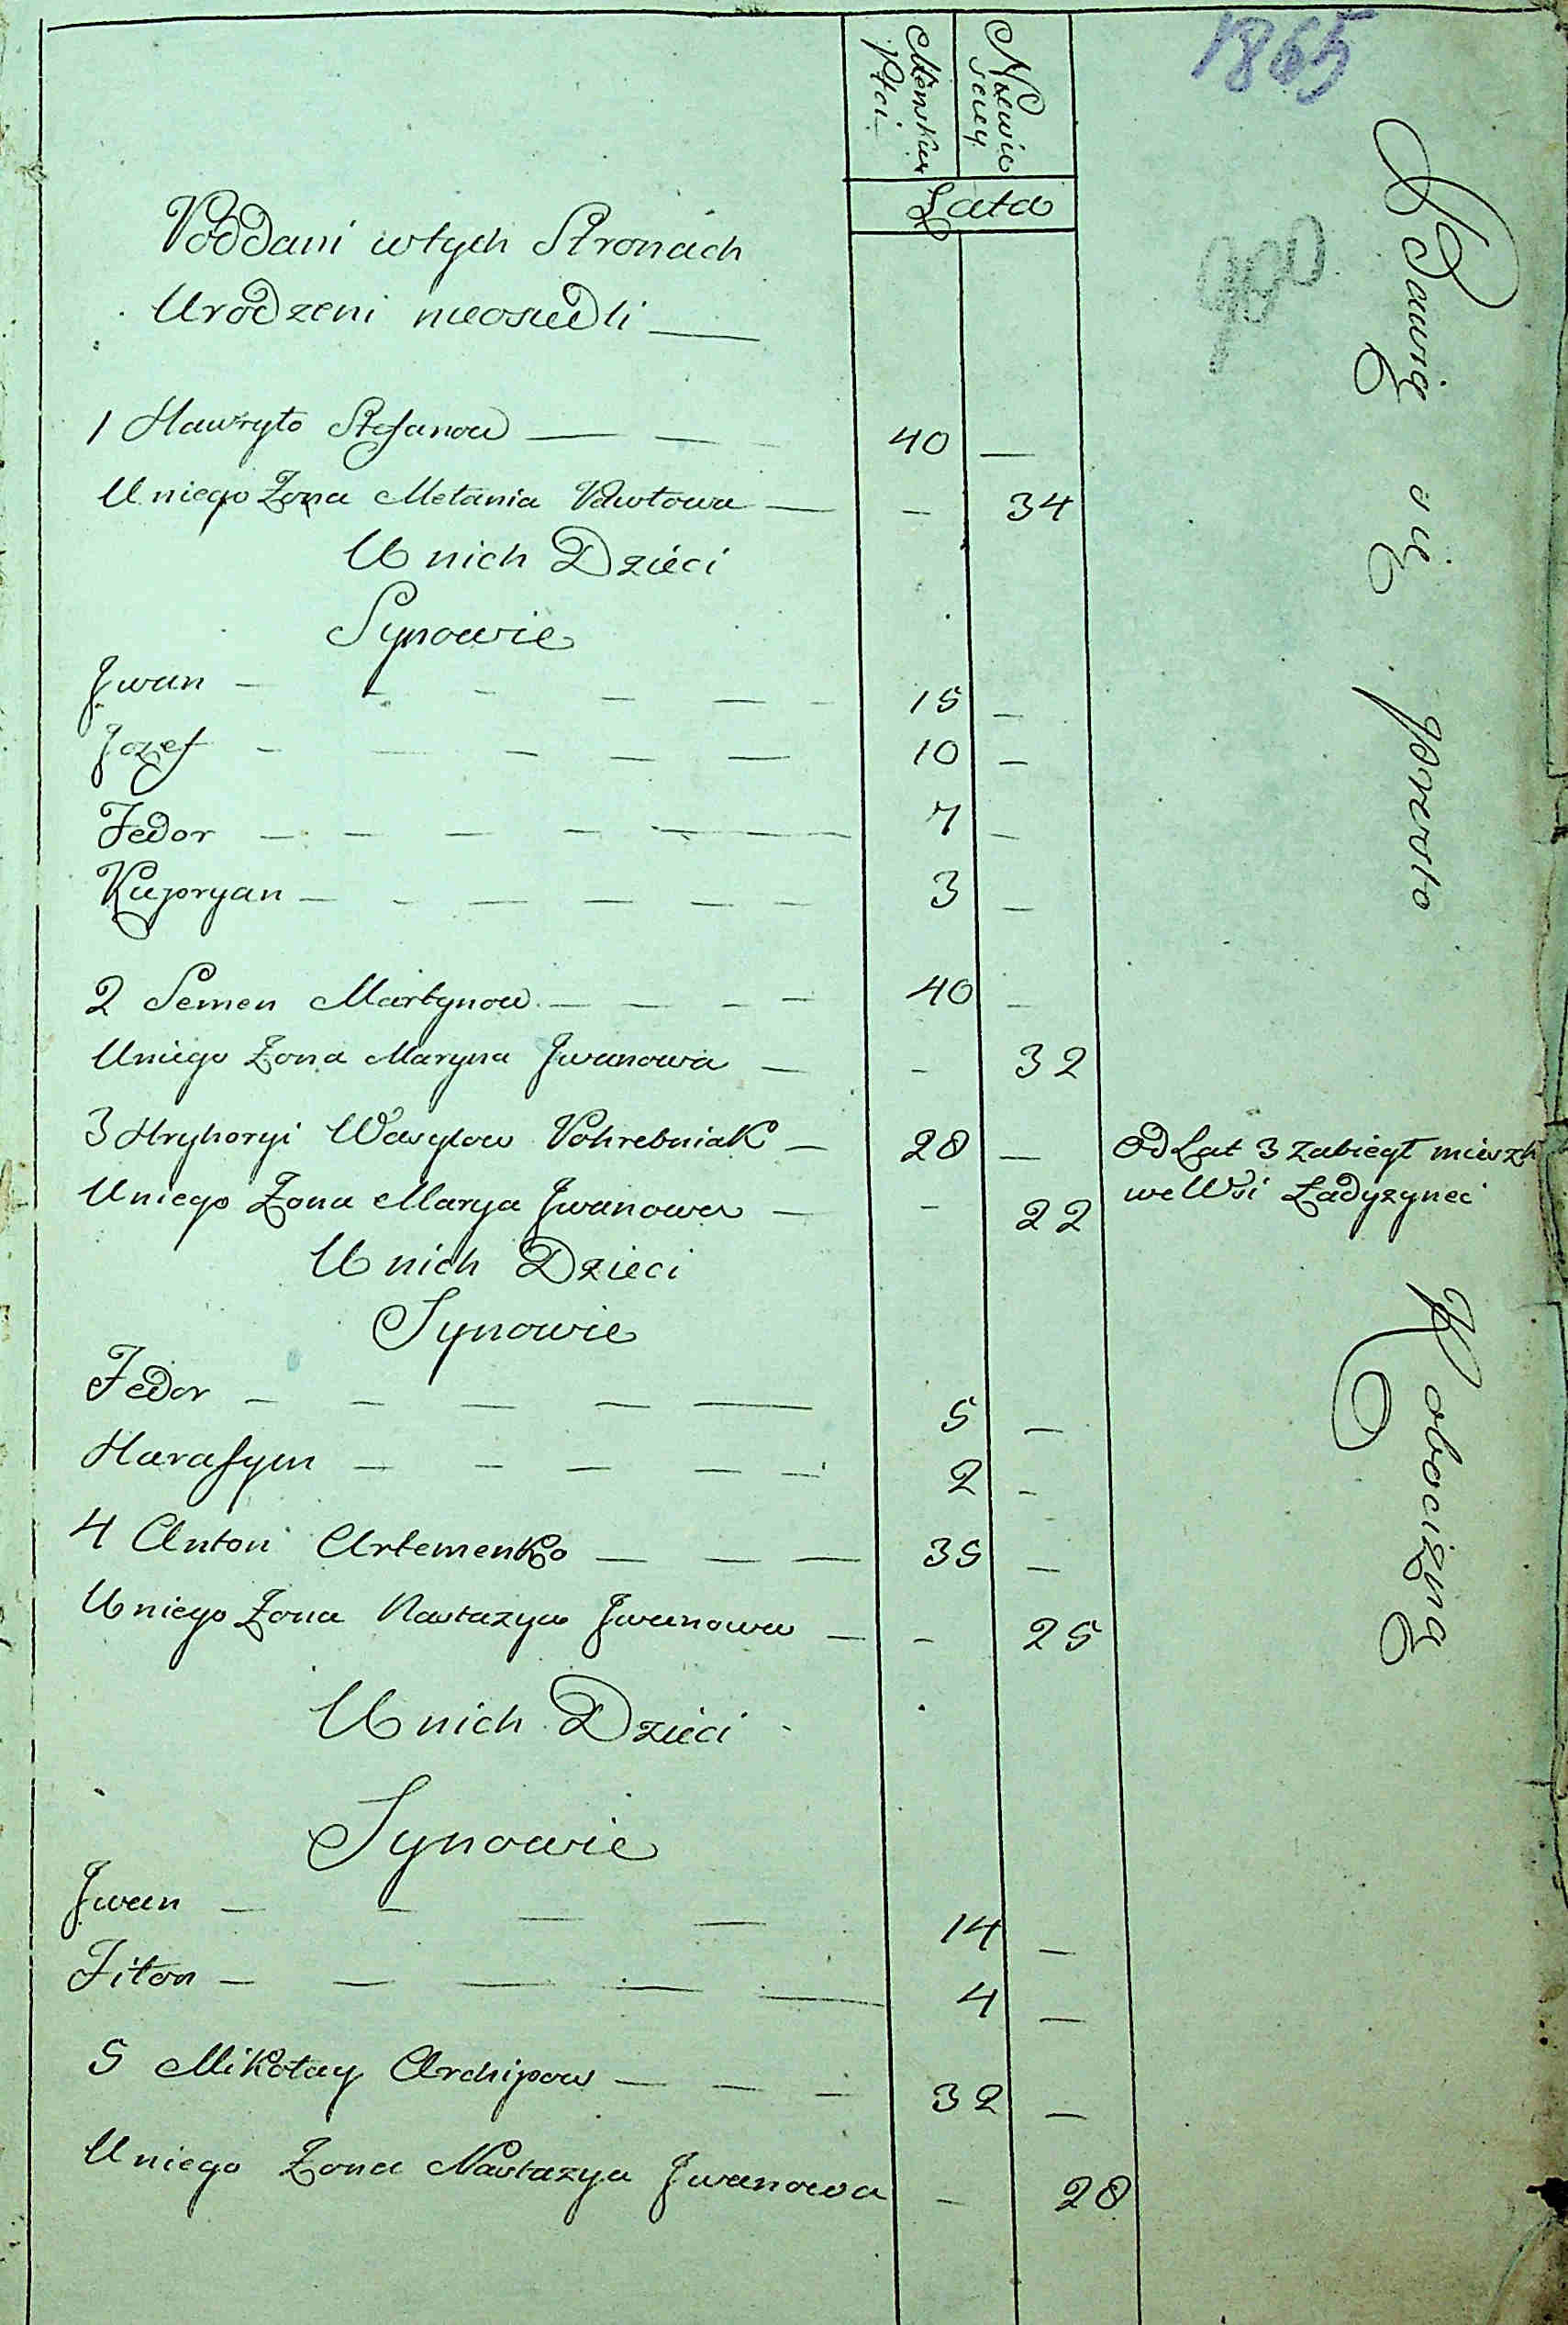 Męnskiey Płci
Niewiesciey
1865
Lata
900
Poddani wtych Stronach
Urodzeni nieosiedli
1 Hawryło Stefanow — — — 40 —
U niego Zona Mełania Pawłowa — — 34
U nich Dzieci
Synowie
Jwan — — — — — — 15 —
Jozef — — — — — 10 —
Fedor — — — — — — 7 —
Kupryan — — — — — — 3 —
2 Semen Martynow — — — — 40 —
Uniego Zona Maryna Jwanowa — — 32
3 Hryhoryi Wasylow Pohrebniak — 28 — Od Lat 3 zabiegł mieszk
Uniego Zona Marya Jwanowa — — 22 we Wsi Ładyzynci
U nich Dzieci
Synowie
Fedor — — — — — 5 —
Harasym — — — — — 2 —
4 Anton Artemenko — — — 35 —
U niego Zona Nastazya Jwanowa — — 25
U nich Dzieci
Synowie
Jwan — — — — 14 —
Fiton — — — — — 4 —
5 Mikołay Archipow — — — 32 —
U niego Zona Nastazya Jwanowa — 28
Bawią się prosto Robocizną